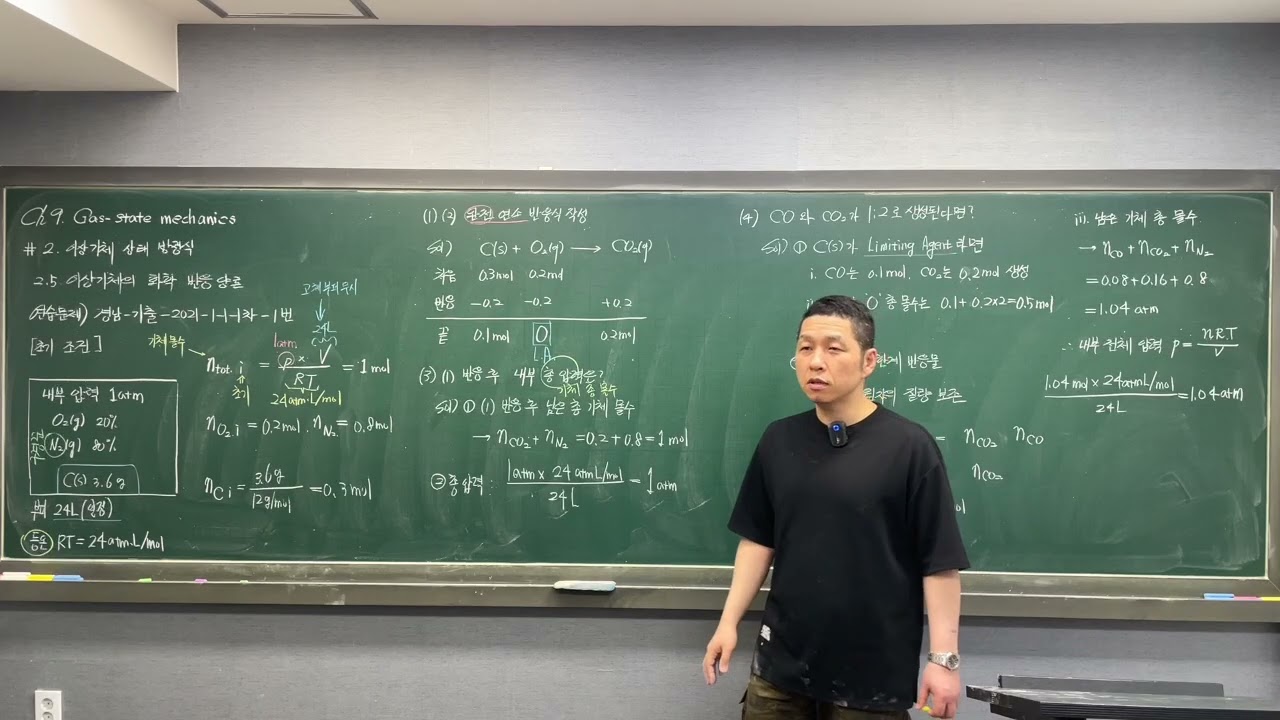 Ch 9. Gas-state mechanics
# 2. 이상기체 상태 방정식
2.5 이상기체의 화학 반응 양론
연습문제) 경남-기출-2021-1-1-1차-1번
[초기 조건]
내부 압력 1atm
O₂(g) 20%
N₂(g) 80%
C(s) 3.6g
부피 24L(일정)
등온 RT=24atm·L/mol
고체 부피 무시
24L
기체 몰수
1atm
n tot. i = P × V / RT = 1 mol
초기
24atm·L/mol
n O₂.i = 0.2mol. n N₂. = 0.8mol
n C i = 3.6g / 12g/mol = 0.3mol
(1) (2) 완전 연소 반응식 작성
sol) C(s) + O₂(g) → CO₂(g)
0.3mol 0.2mol
반응 -0.2 -0.2 +0.2
끝 0.1mol 0 0.2mol
L.A
(3) (1) 반응 후 내부 총 압력은?
기체 총 몰수
sol) ① (1) 반응 후 남은 총 기체 몰수
→ n CO₂ + n N₂ = 0.2+0.8 = 1 mol
② 총 압력: 1atm × 24 atm·L/mol / 24L = 1 atm
(4) CO 와 CO₂가 1:2로 생성된다면?
sol) ① C(s)가 Limiting Agent 라면
i. CO는 0.1mol, CO₂는 0.2mol 생성
'O' 총 몰수는 0.1+0.2×2=0.5mol
한계 반응물
원자의 질량 보존
= n CO₂ n CO
n CO₂
ol
iii. 남은 기체 총 몰수
→ n CO + n CO₂ + n N₂
= 0.08+0.16+0.8
= 1.04 atm
∴ 내부 전체 압력 P = nRT / V
1.04 mol × 24atm·L/mol / 24L = 1.04 atm